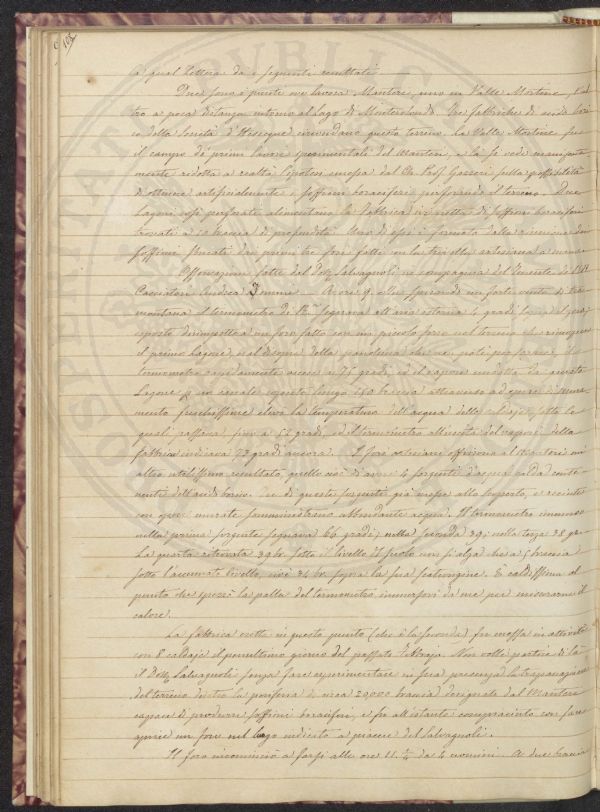 108
a qual lettera dà i seguenti resultati
Due sono i punti ove lavora Manteri, uno in Valle Mortine, l'al
tro a poca distanza intorno al Lago di Monterotondo. Tre fabbriche di acido bori
co della Società d'Hesecque circondano questo terreno. La Valle Mortine fu
il campo de' primi lavori sperimentali del Manteri, e là si vede manifesta
mente ridotta a realtà l'ipotesi emessa dal Ch. Prof. Gazzeri sulla possibilità
di ottenere artificialmente i soffioni boraciferi perforando il terreno. Due
Lagoni così perforati alimentano la fabbrica di soffioni boraciferi
trovati a 10 braccia di profondità. Uno di essi è formato dalla riunione di
soffioni dai primi tre fori fatti con la trivella artesiana a mano
Osservazioni fatte dal Dott. Salvagnoli in compagnia del Tenente de'
Cacciatori Andrea . A ore 9 spirando un forte vento di tra
montana il termometro di R. segnava all'aria esterna 4 gradi sopra il zero,
esposto dirimpetto a un foro fatto con un piccolo ferro nel terreno che
il primo Lagone, e al disopra della che non potei perforare, il
termometro rapidamente ascese a 75 gradi, ed il vapore condotto da questo
Lagone in un canale coperto lungo 150 braccia attraverso ad opera di mura
mento freschissime elevò la temperatura dell'acqua delle caldaje, sotto le
quali passava, fino a 52 gradi, ed il termometro all'uscita del vapore della
fabbrica indicava 73 gradi ancora. I fori artesiani offrirono al Manteri un
altro utilissimo resultato, quello cioè di avere 4 sorgenti d'acqua calda conte
nente dell'acido borico. Tre di queste sorgenti già messe allo scoperto, e recinte
con opere murate somministrano abbondante acqua. Il termometro immerso
nella prima sorgente segnava 66 gradi; nella seconda 39; nella terza 38 gr.
La quarta ritrovata 39 br. sotto il livello il suolo non si alza che a 5 braccia
sotto l'accennato livello, cioè 34 br. sopra la sua scaturigine. È caldissima al
punto che spezzò la palla del termometro immersovi da me per misurarne il
calore.
La fabbrica eretta in questo punto (che è la seconda) fu messa in attività
con 8 caldaje il penultimo giorno del passato Febbrajo. Non volle partire di là
il Dott. Salvagnoli senza fare esperimentare in sua presenza la trapanazione
del terreno dentro la periferia di circa 20000 braccia designata dal Manteri
capace di produrre soffioni boraciferi, e fu all'istante compiaciuto con fare
aprire un foro nel luogo indicato a piacere del Salvagnoli.
Il foro incominciò a farsi alle ore 11 ¼ da 4 uomini. A due braccia